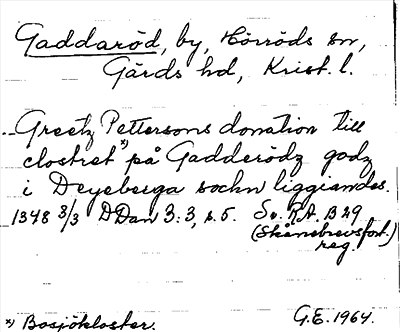 Gaddaröd, by, Hörröds sn,
Gärds hd, Krist. l.
Greetz Pettersons donation till
clostret x) på Gadderödz godz
i Deyeberga sockn liggiandes.
1348 3/3 DDan 3:3, s. 5. Sv. R.A. B 29
(Skånebrevsfört.)
reg.
x) Bosjökloster.
G.E. 1964.